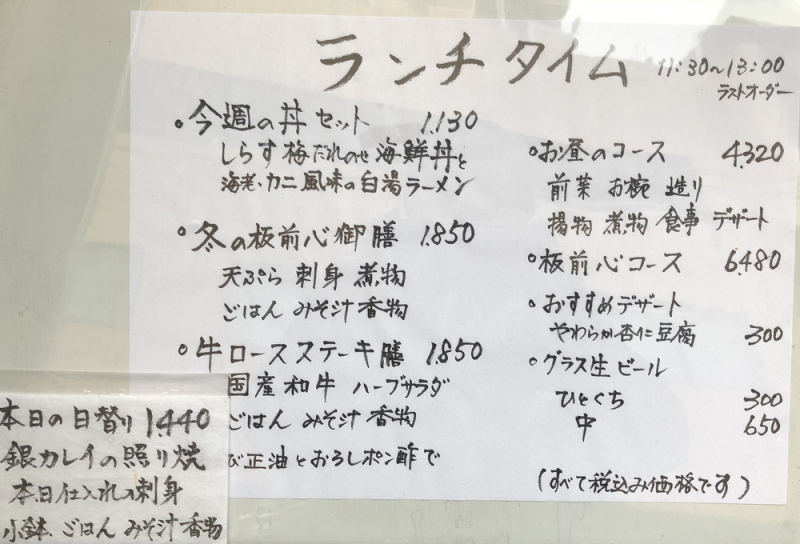 ランチタイム 11:30～13:00
ラストオーダー
・今週の丼セット 1.130
しらす梅だれのせ海鮮丼と
海老・カニ風味の白湯ラーメン
・冬の板前心御膳 1.850
天ぷら 刺身 煮物
ごはん みそ汁 香物
・牛ロースステーキ膳 1.850
国産和牛 ハーブサラダ
ごはん みそ汁 香物
び正油とおろしポン酢で
・お昼のコース 4.320
前菜 お椀 造り
揚物 煮物 食事 デザート
・板前心コース 6.480
・おすすめデザート
やわらか杏仁豆腐 300
・グラス生ビール
ひとくち 300
中 650
(すべて税込み価格です)
本日の日替り 1.440
銀カレイの照り焼
本日仕入れの刺身
小鉢、ごはん みそ汁 香物